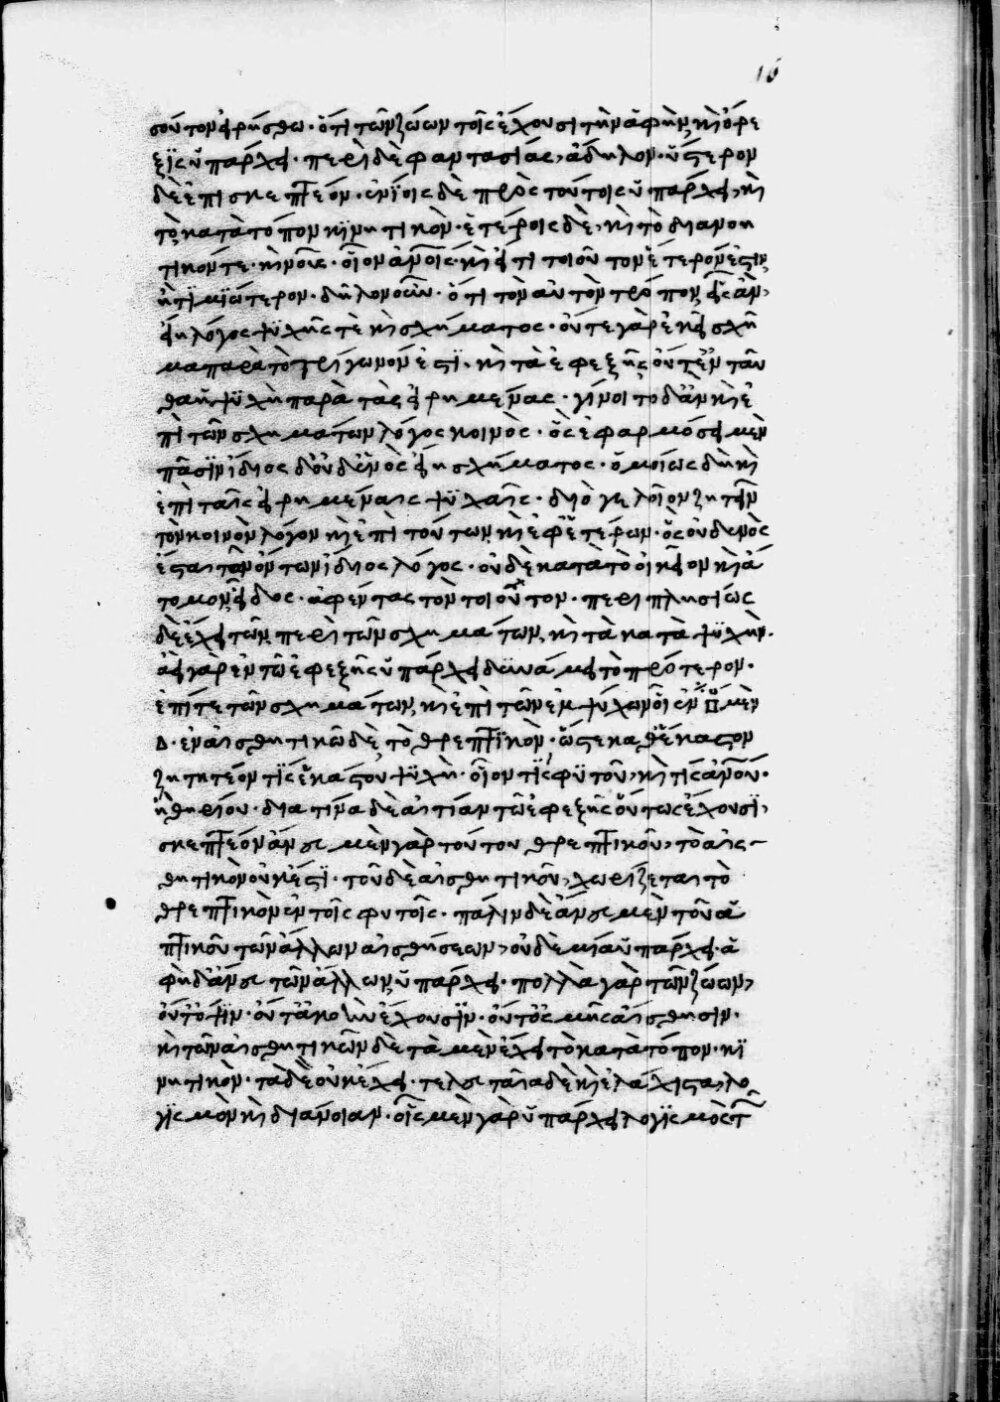 16
σοῦτον εἰρήσθω· ὅτι τῶν ζώων τοῖς ἔχουσι τὴν ἁφὴν, καὶ ὄρε
ξις ὑπάρχει· περὶ δὲ φαντασίας, ἄδηλον· ὕστερον
δὲ ἐπισκεπτέον· ἐνίοις δὲ πρὸς τούτοις ὑπάρχει, καὶ
τὸ κατὰ τόπον κινητικόν· ἑτέροις δὲ, καὶ τὸ διανοη
τικόν τε· καὶ νοῦς· οἷον ἀνοις· καὶ εἴ τι τοιοῦτον ἕτερόν ἐστιν,
ἢ τιμιώτερον· δῆλον οὖν· ὅτι τὸν αὐτὸν τρόπον εἷς ἂν,
εἴη λόγος ψυχῆς τὲ καὶ σχήματος· οὔτε γὰρ ἐκεῖ σχῆ
μα παρὰ τὸ τρίγωνόν ἐστι· καὶ τὰ ἐφεξῆς οὔτ' ἐνταῦ
θα ἡ ψυχὴ παρὰ τὰς εἰρημένας· γίνοιτο δ' ἂν καὶ ἐ
πὶ τῶν σχημάτων λόγος κοινὸς· ὃς ἐφαρμόσει μὲν
πᾶσιν ἴδιος δ' οὐδενὸς εἴη σχήματος· ὁμοίως δὴ καὶ
ἐπὶ ταῖς εἰρημέναις ψυχαῖς· διὸ γελοῖον ζητεῖν
τὸν κοινὸν λόγον καὶ ἐπὶ τούτων καὶ ἐφ' ἑτέρων· ὃς οὐδενὸς
ἔσται τῶν ὄντων ἴδιος λόγος· οὐδὲ κατὰ τὸ οἰκεῖον καὶ ἄ
τομον εἶδος· ἀφέντας τὸν τοιοῦτον· περιπλησίως
δὲ ἔχει τῶν περὶ τῶν σχημάτων, καὶ τὰ κατὰ ψυχήν·
ἀεὶ γὰρ ἐν τῶ ἐφεξῆς ὑπάρχει δυνάμει τὸ πρότερον·
ἐπί τε τῶν σχημάτων, καὶ ἐπὶ τῶν ἐμψύχων οἷον ἐν □ μὲν
Δ· ἐν αἰσθητικῶ δὲ, τὸ θρεπτικόν· ὥστε καθ' ἕκαστον
ζητητέον τίς ἑκάστου ψυχή· οἷον τίς φυτοῦ, καὶ τίς ἀνου·
ἢ θηρίου· διὰ τίνα δὲ αἰτίαν τῶ ἐφεξῆς οὕτως ἔχουσι,
σκεπτέον ἄνευ μὲν γὰρ τούτου θρεπτικοῦ, τὸ αἰσ
θητικὸν οὐκ ἔστι· τοῦ δὲ αἰσθητικοῦ, χωρίζεται τὸ
θρεπτικὸν ἐν τοῖς φυτοῖς· πάλιν δὲ ἄνευ μὲν τοῦ ἁ
πτικοῦ τῶν ἄλλων αἰσθήσεων, οὐδεμία ὑπάρχει· ἁ
φὴ δ' ἄνευ τῶν ἄλλων ὑπάρχει· πολλὰ γὰρ τῶν ζώων,
οὔτ' ὄψιν· οὔτ' ἀκοὴν ἔχουσιν· οὔτ' ὀσμῆς αἴσθησιν·
καὶ τῶν αἰσθητικῶν δὲ τὰ μὲν ἔχει τὸ κατὰ τόπον· κι
νητικόν· τὰ δὲ οὐκ ἔχει· τελευταῖα δὲ καὶ ἐλάχιστα, λο
γισμὸν καὶ διάνοιαν· οἷς μὲν γὰρ ὑπάρχει λογισμὸς τῶν